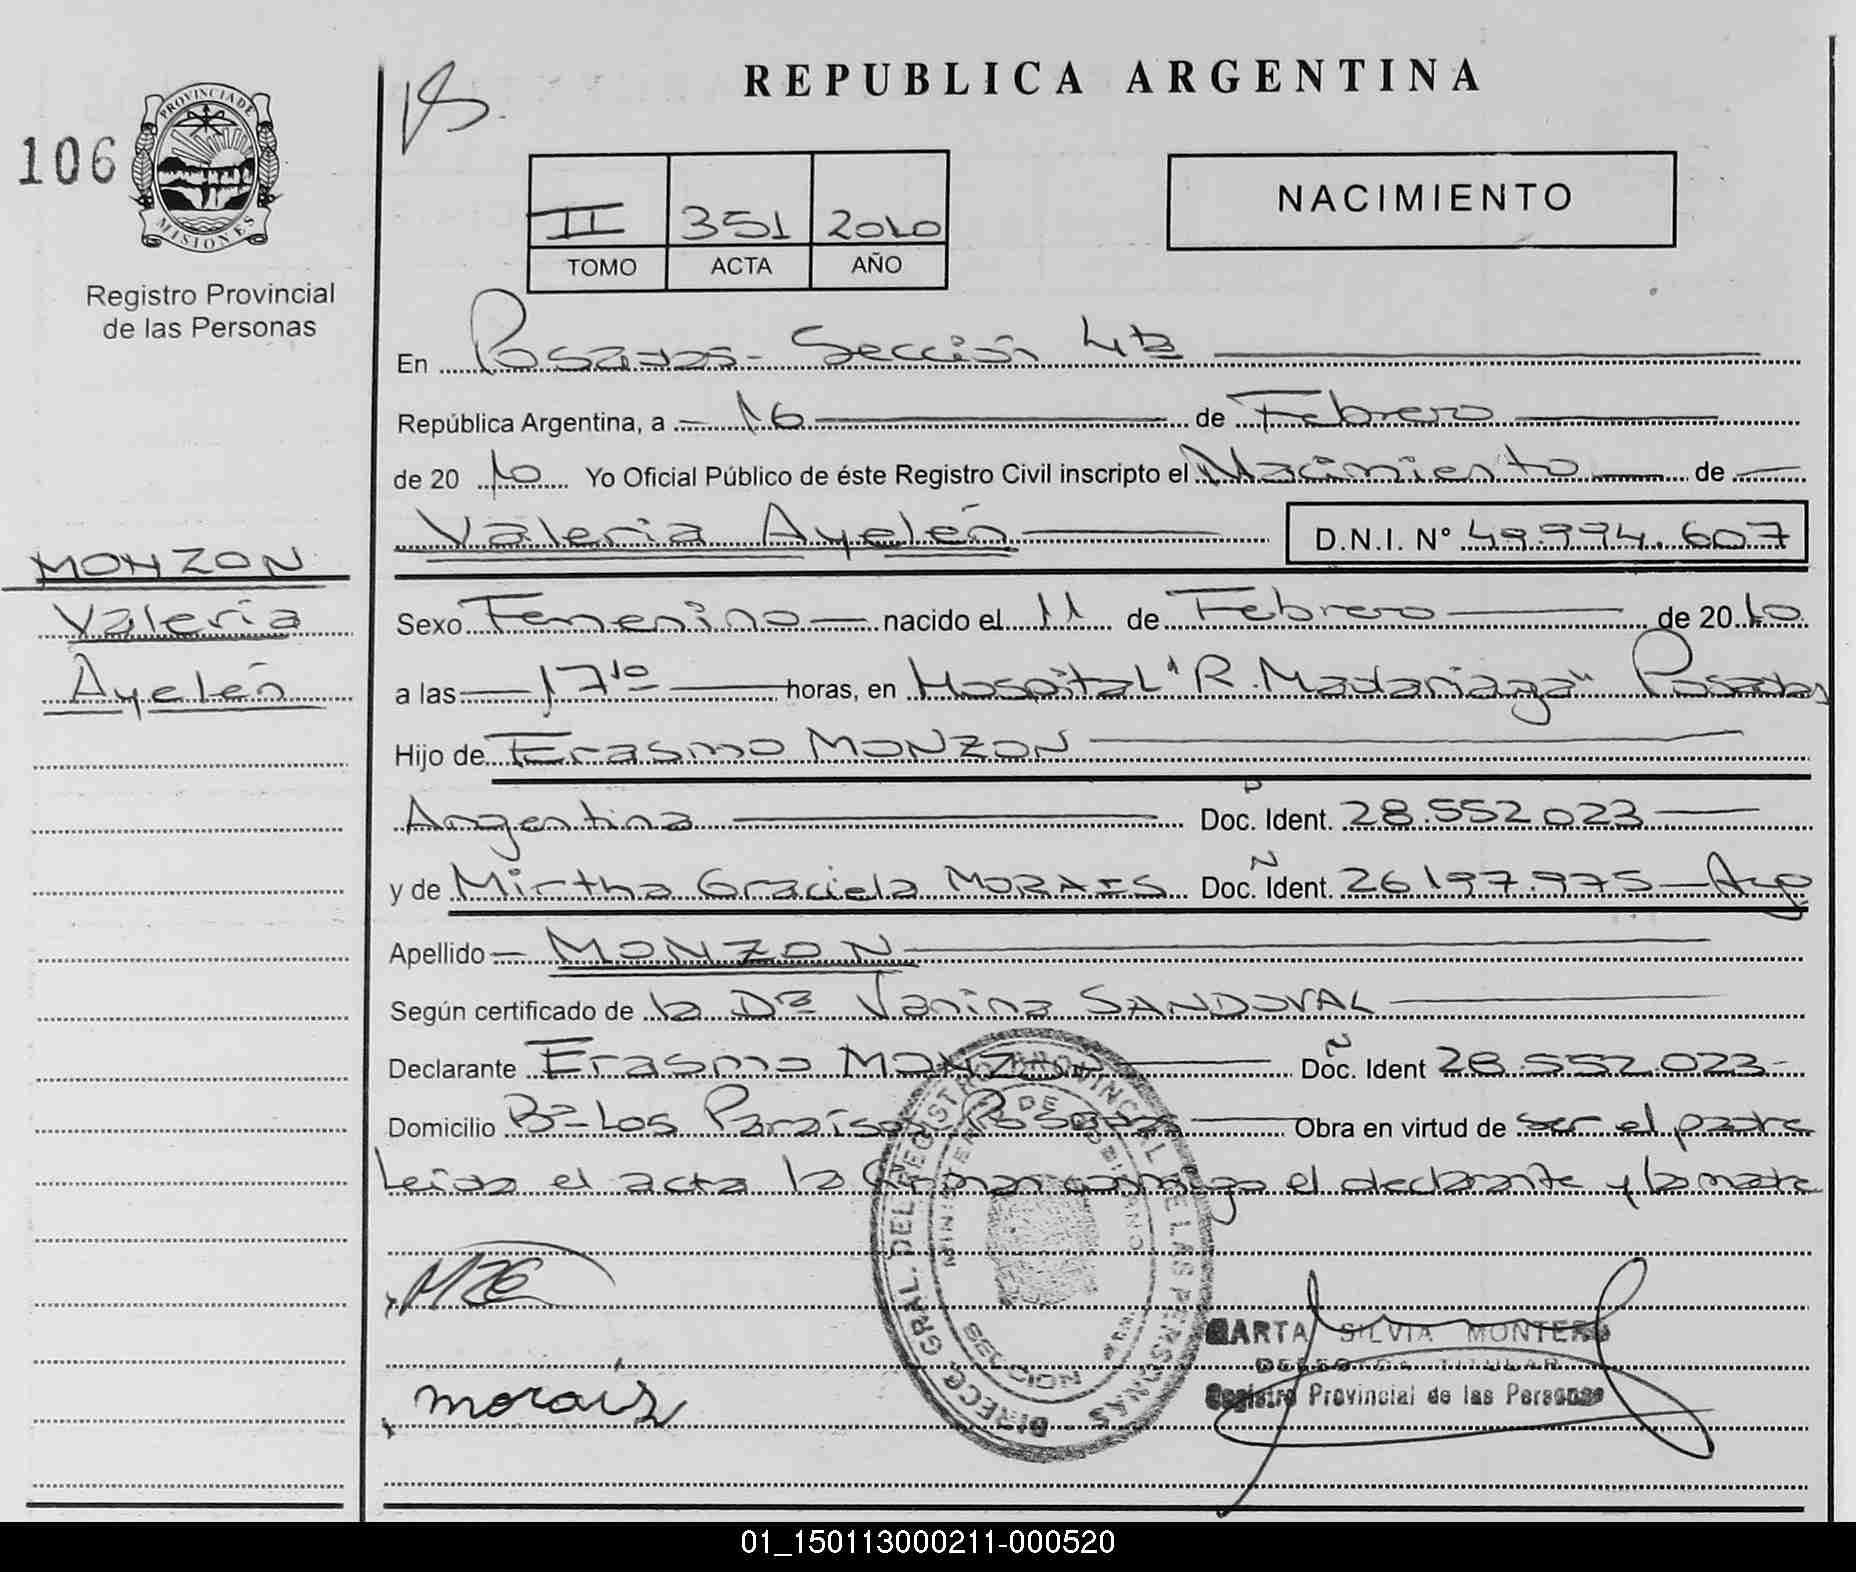 REPUBLICA ARGENTINA
106
PROVINCIA DE
MISIONES
Registro Provincial
de las Personas
II 351 2010
TOMO ACTA AÑO
NACIMIENTO
En Posadas - Sección 4ta
República Argentina, a 16 de Febrero
de 2010 Yo Oficial Público de éste Registro Civil inscripto el Nacimiento de
Valeria Ayelén D.N.I. N° 49.994.607
MONZON
Valeria
Ayelén
Sexo Femenino nacido el 11 de Febrero de 2010
a las 17 10 horas, en Hospital "R. Madariaga" Posadas
Hijo de Erasmo MONZON
Argentina Doc. Ident. 28.552.023
y de Mirtha Graciela MORAIS Doc. Ident. 26.197.975 - Arg
Apellido MONZON
Según certificado de la Dra Vanina SANDOVAL
Declarante Erasmo MONZON Doc. Ident 28.552.023-
Domicilio Bº Los Paraísos Posadas Obra en virtud de ser el padre
Leída el acta la firman conmigo el declarante y la madre
DIRECC. GRAL. DEL REGISTRO PROVINCIAL DE LAS PERSONAS
MZE
morais
MARTA SILVIA MONTERO
TITULAR
Registro Provincial de las Personas
01_150113000211-000520